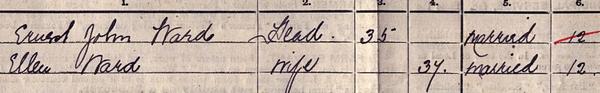 1. 2. 3. 4. 5. 6.
Ernest John Ward Head. 35 married 12
Ellen Ward Wife 37. married 12.